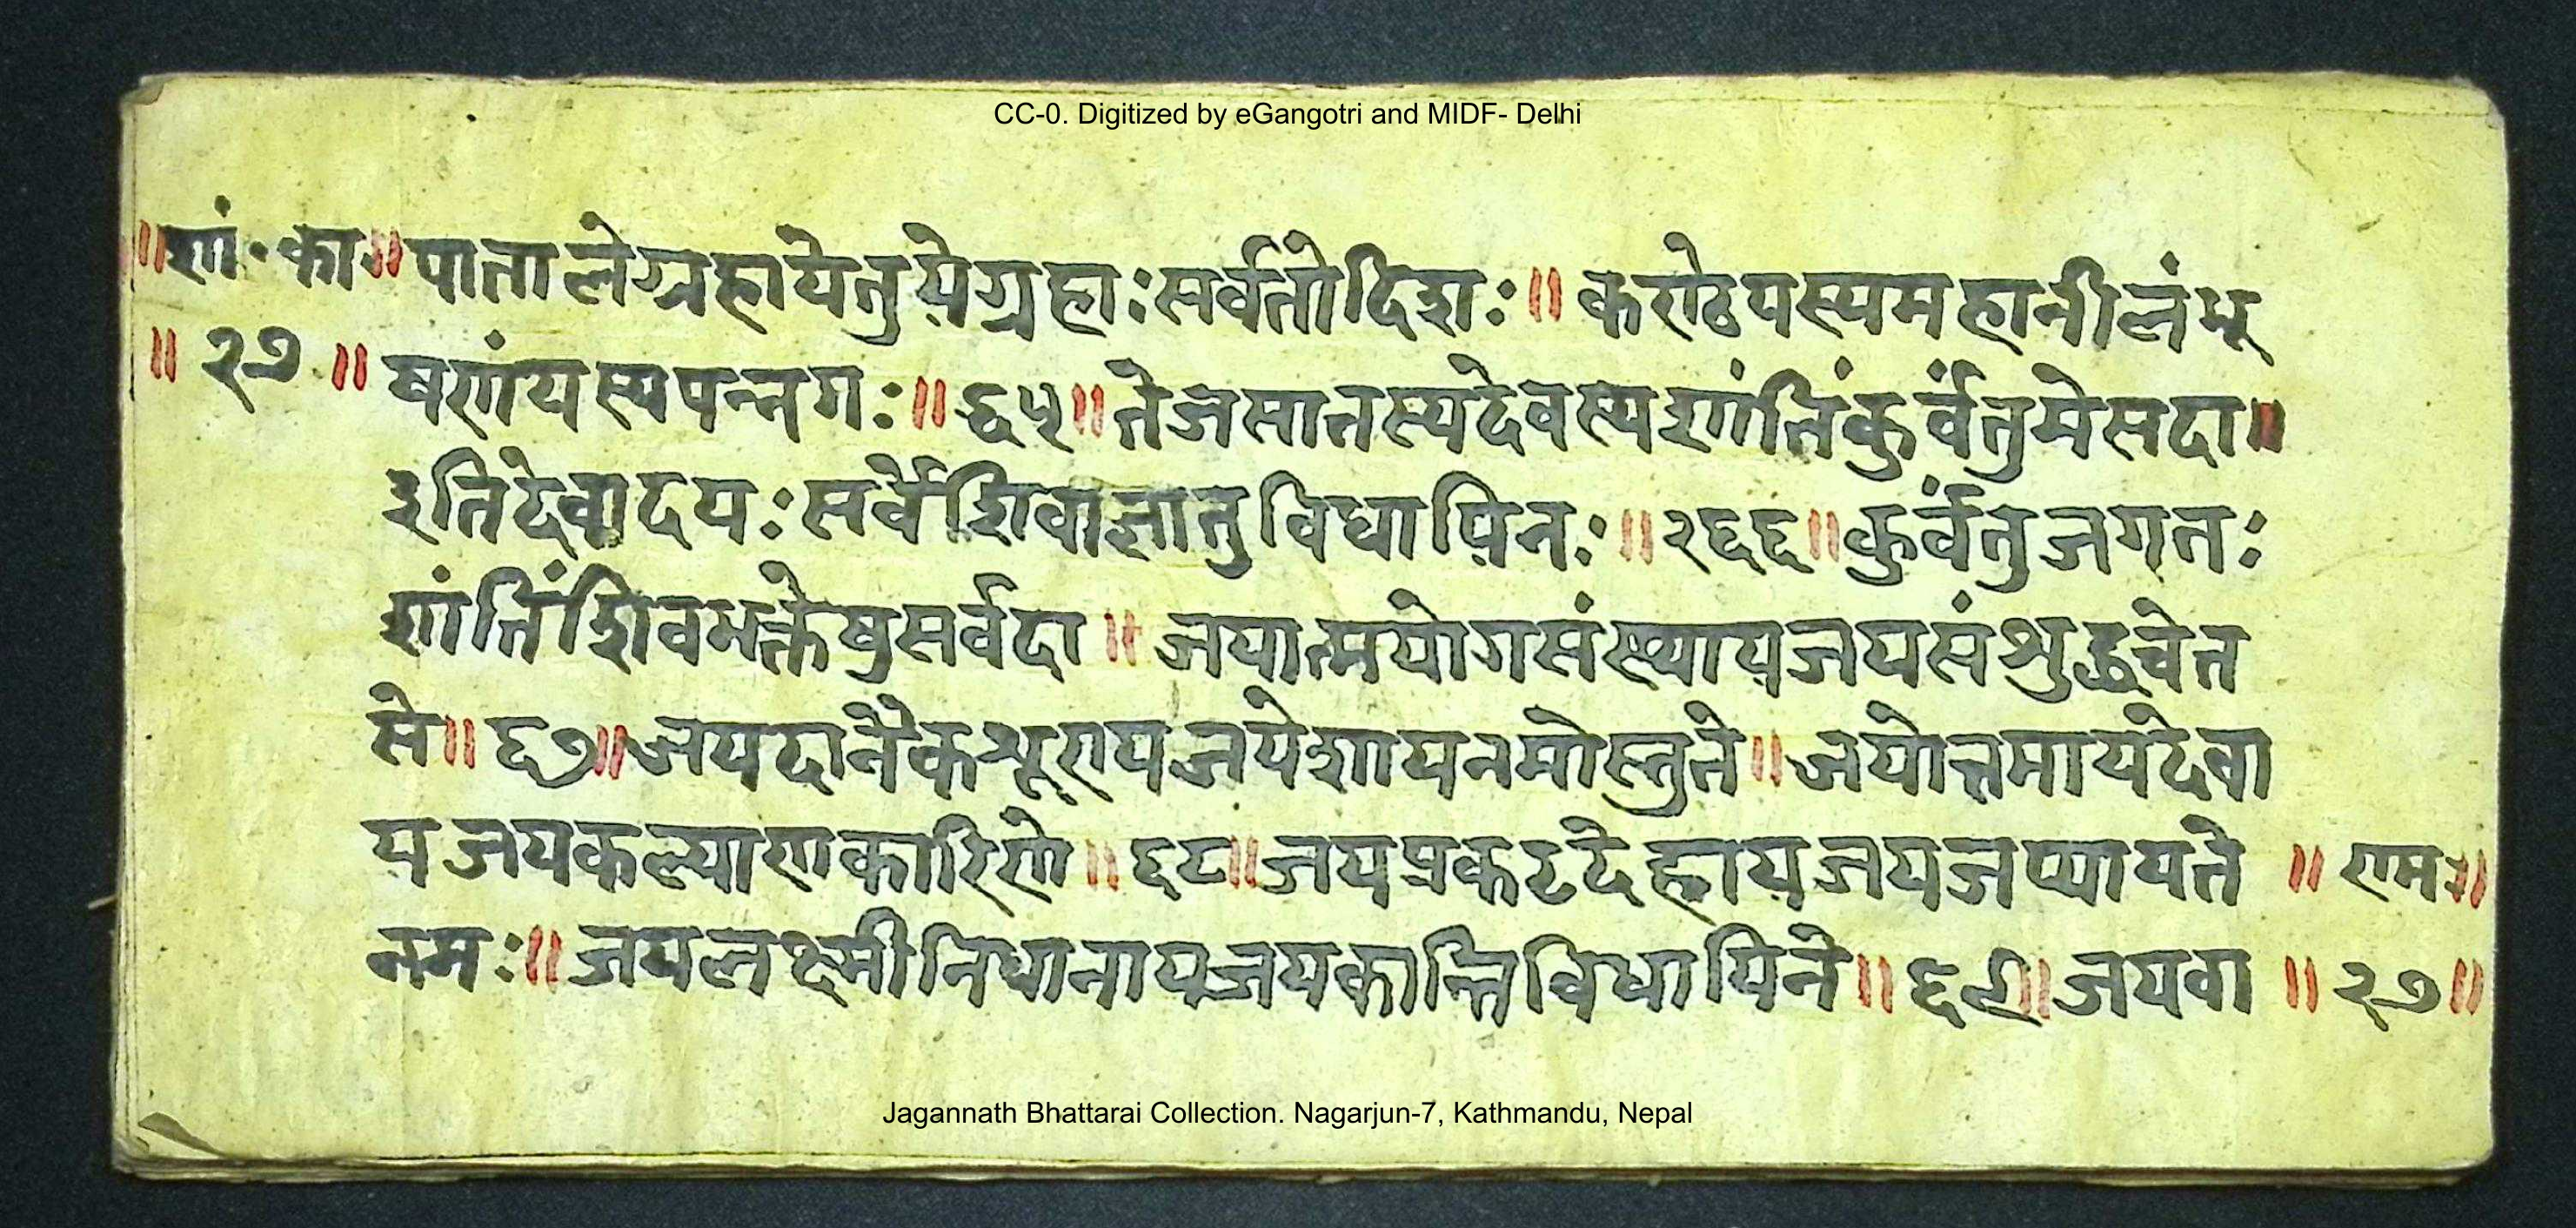 CC-0. Digitized by eGangotri and MIDF- Delhi
॥शां॰का॥पातालेग्रहायेतुयेग्रहाःसर्वतोदिशः॥करोठयस्यमहानीलंभू
॥२७॥षणंयस्यपन्नगः॥६५॥तेजसातस्यदेवस्यशांतिंकुर्वंतुमेसदा॥
इतिदेवादयःसर्वेशिवाज्ञातुविधायिनः॥२६६॥कुर्वंतुजगतः
शांतिंशिवभक्तेषुसर्वदा॥जयात्मयोगसंस्थायजयसंशुद्धचेत
से॥६७॥जयदानैकशूरायजयेशायनमोस्तुते॥जयोत्तमायदेवा
यजयकल्याणकारिणे॥६८॥जयप्रकटदेहायजयजप्यायते॥रामः॥
नमः॥जयलक्ष्मीनिधानायजयकान्तिविधायिने॥६९॥जयवा॥२७॥
Jagannath Bhattarai Collection. Nagarjun-7, Kathmandu, Nepal